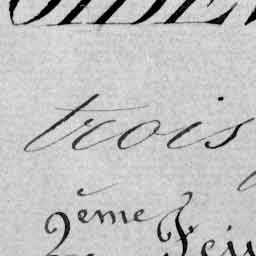 trois
2ème Feu